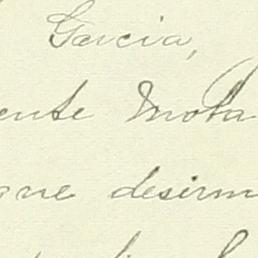 Garcia,
ente Mota
que desirm